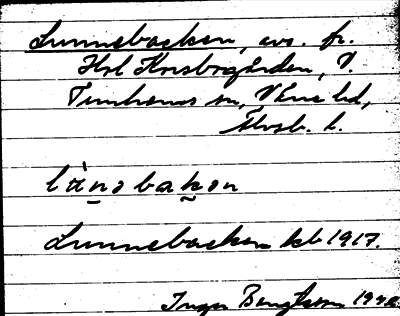 Lunnebacken, avs. fr.
Hrl Korsbogården, V.
Tunhems sn, Väne hd,
Älvsb. l.
lànabakan
Lunnebacken kb 1917.
Inger Bengtsson